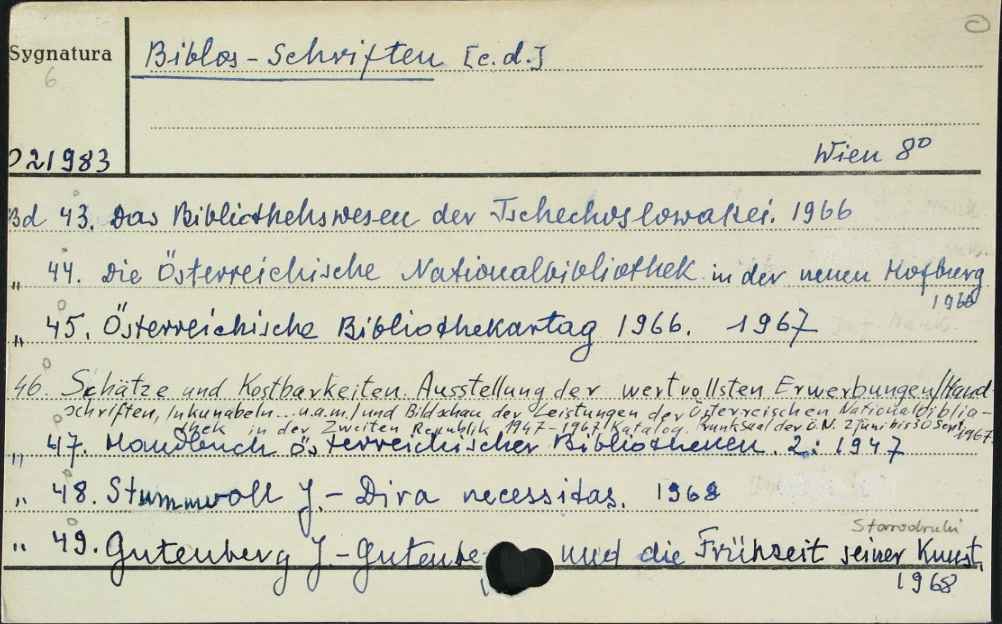 Sygnatura
Biblos-Schriften [c.d.]
6
021983
Wien 8°
Bd 43. Das Bibliothekswesen der Tschechoslowakei. 1966
„ 44. Die Österreichische Nationalbibliothek in der neuen Hofburg
1966
„ 45. Österreichische Bibliothekartag 1966. 1967
46. Schätze und Kostbarkeiten. Ausstellung der wertvollsten Erwerbungen/Hand
schriften, Inkunabeln...u.a.m./und Bildschau der Leistungen der Österreischen Nationalbiblio-
thek in der Zweiten Republik 1947-1967/Katalog. Prunksaal der Ö.N. 2 Juni bis 30 Sept.
1967.
„ 47. Handbuch österreichischer Bibliotheken. 2: 1947
„ 48. Stummvoll J. - Dira necessitas. 1968
Starodruki
„ 49. Gutenberg J. - Gutenbe und die Frühzeit seiner Kunst,
1968